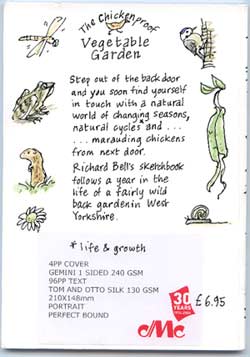 The Chickenproof
Vegetable
Garden
Step out of the back door
and you soon find yourself
in touch with a natural
world of changing seasons,
natural cycles and . . .
. . . marauding chickens
from next door.
Richard Bell's sketchbook
follows a year in the
life of a fairly wild
back garden in West
Yorkshire.
* life & growth
4PP COVER
GEMINI 1 SIDED 240 GSM
96PP TEXT
TOM AND OTTO SILK 130 GSM
210X148mm
PORTRAIT
PERFECT BOUND
30
YEARS
CMC
£6.95